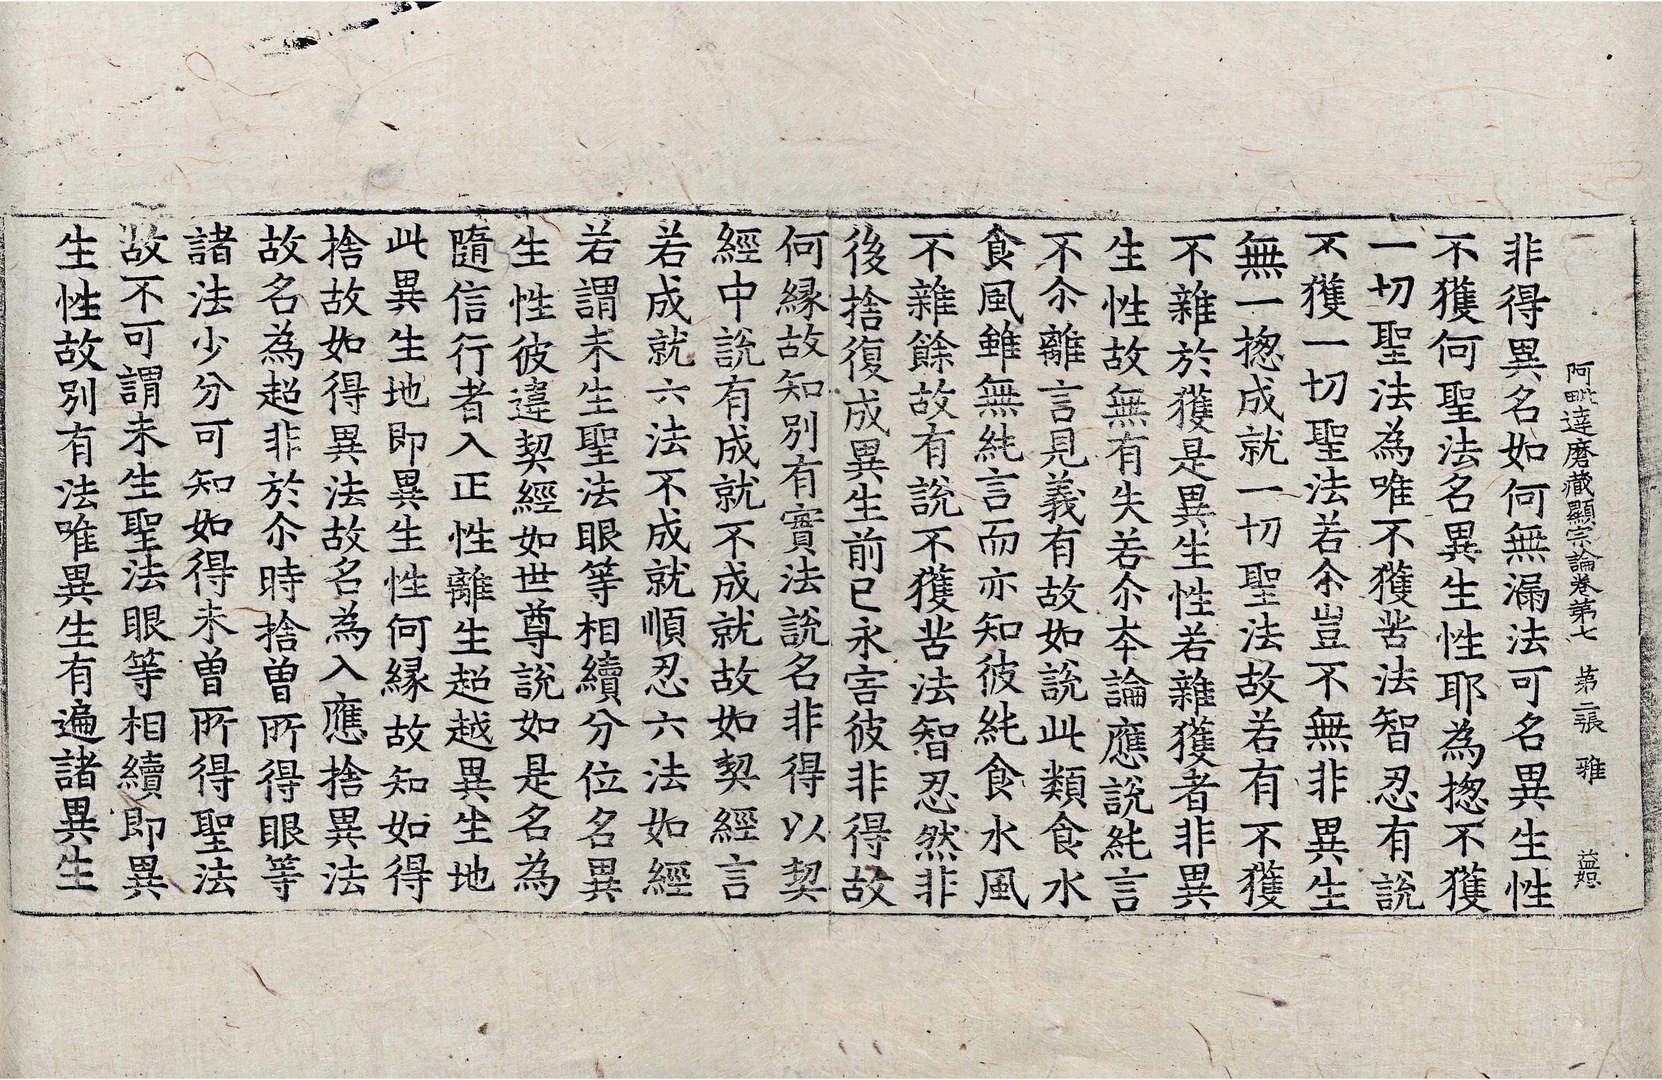 阿毗達磨藏顯宗論卷第七 第二張 雅 益恕
非得異名如何無漏法可名異生性
不獲何聖法名異生性耶為揔不獲
一切聖法為唯不獲苦法智忍有說
不獲一切聖法若尒豈不無非異生
無一揔成就一切聖法故若有不獲
不雜於獲是異生性若雜獲者非異
生性故無有失若尒夲論應說純言
不尒離言見義有故如說此類食水
食風雖無純言而亦知彼純食水風
不雜餘故有說不獲苦法智忍然非
後捨復成異生前已永害彼非得故
何緣故知別有實法說名非得以契
經中說有成就不成就故如契經言
若成就六法不成就順忍六法如經
若謂未生聖法眼等相續分位名異
生性彼違契經如世尊說如是名為
隨信行者入正性離生超越異生地
此異生地即異生性何緣故知如得
捨故如得異法故名為入應捨異法
故名為超非於尒時捨曾所得眼等
諸法少分可知如得未曾所得聖法
故不可謂未生聖法眼等相續即異
生性故別有法唯異生有遍諸異生